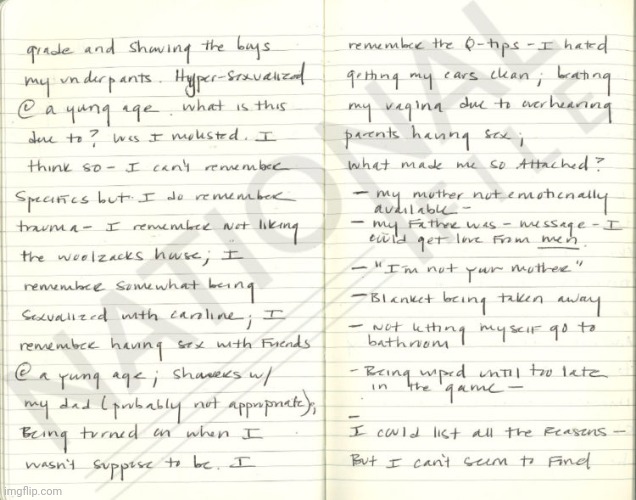 grade and showing the boys
my underpants. Hyper-Sexualized
@ a yung age. what is this
due to? Was I molested. I
think so - I can't remember
Specifics but I do remember
trauma - I remember not liking
the woolzacks house; I
remember somewhat being
Sexualized with caroline; I
remember having sex with Friends
@ a yung age; showers w/
my dad (probably not appropriate);
Being turned on when I
wasn't suppose to be. I
remember the Q-tips - I hated
getting my ears clean; beating
my vagina due to overhearing
parents having sex;
What made me so Attached?
- my mother not emotionally
available -
- my Father was - message - I
could get love From men.
- "I'm not your mother"
- Blanket being taken away
- Not letting myself go to
bathroom
- Being wiped until too late
in the game -
-
I could list all the Reasons -
But I can't seem to Find
NATIONAL
FILE
imgflip.com